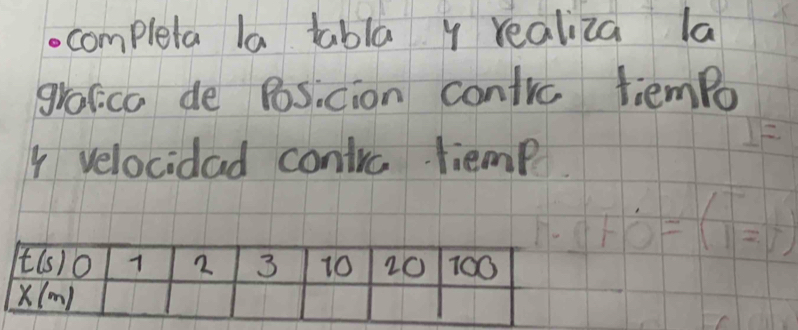 •completa la tabla y realiza la
grafica de Posicion contra tiempo
y velocidad contra tiemp
t(s) 0 1 2 3 10 20 100
x(m)